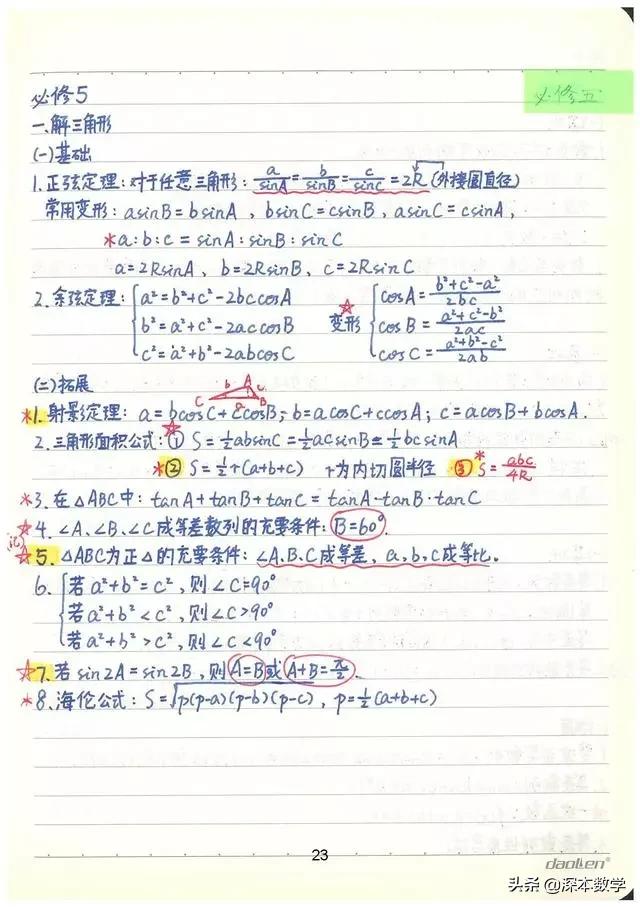 必修5
必修五
一.解三角形
(一)基础
1.正弦定理:对于任意三角形: a/sinA = b/sinB = c/sinC = 2R (外接圆直径)
常用变形: asinB=bsinA , bsinC=csinB, asinC=csinA,
*a:b:c = sinA:sinB:sinC
a=2RsinA, b=2RsinB, c=2RsinC
2.余弦定理: { a²=b²+c²-2bccosA 变形 { cosA= (b²+c²-a²)/2bc
b²=a²+c²-2accosB cosB= (a²+c²-b²)/2ac
c²=a²+b²-2abcosC cosC= (a²+b²-c²)/2ab
(二)拓展
C b A c B a
*1.射影定理: a=bcosC+ccosB; b=acosC+ccosA; c=acosB+bcosA.
2.三角形面积公式:☆① S=½absinC=½acsinB=½bcsinA
*② S=½r(a+b+c) r为内切圆半径 ③* S= abc/4R
*3.在△ABC中: tanA+tanB+tanC=tanA·tanB·tanC
☆4.∠A、∠B、∠C成等差数列的充要条件: B=60°.
记
☆5.△ABC为正△的充要条件: ∠A.B.C成等差, a.b.c成等比。
6. { 若a²+b²=c², 则∠C=90°
若a²+b²<c², 则∠C>90°
若a²+b²>c², 则∠C<90°
☆7.若sin2A=sin2B, 则A=B或A+B=π/2.
*8.海伦公式: S=√p(p-a)(p-b)(p-c) , p=½(a+b+c)
23
daolien®
头条 @深本数学